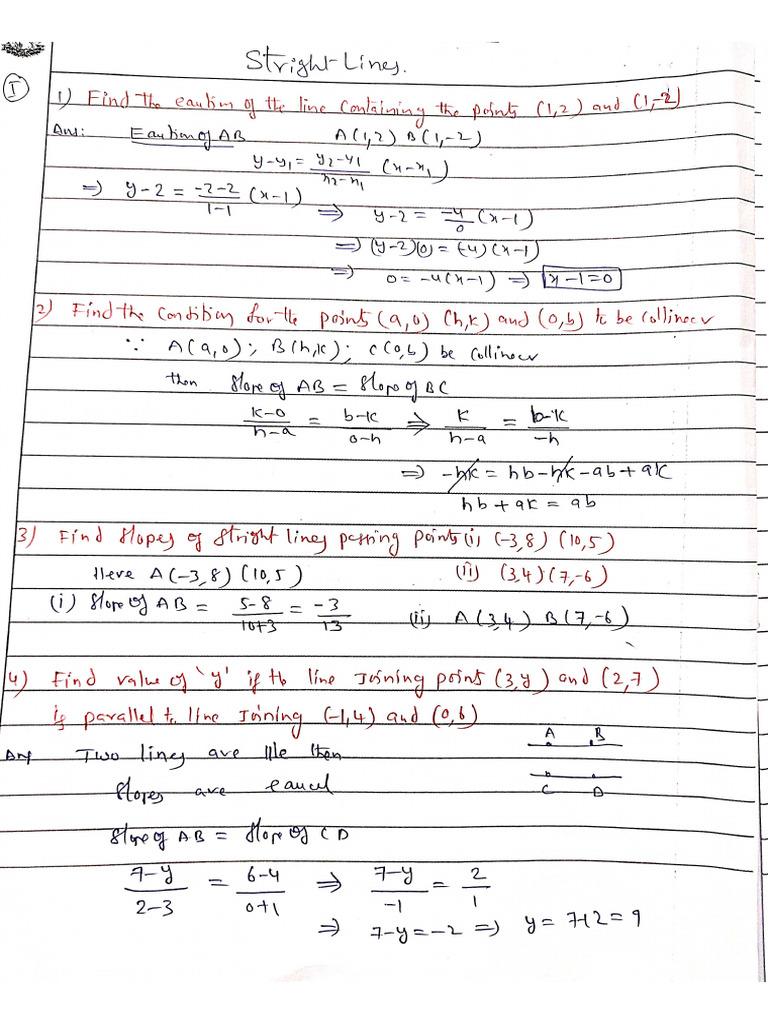 Stright Lines.
I
1) Find the eaution of the line containing the points (1,2) and (1,-2)
Ans: Eaution of AB A(1,2) B(1,-2)
y-y₁ = y₂-y₁/x₂-x₁ (x-x₁)
⇒ y-2 = -2-2/1-1 (x-1) ⇒ y-2 = -4/0 (x-1)
⇒ (y-2)(0) = (-4)(x-1)
⇒ 0 = -4(x-1) ⇒ x-1=0
2) Find the condition for the points (a,0) (h,k) and (0,b) to be collinear
∵ A(a,0); B(h,k); C(0,b) be collinear
then slope of AB = slope of BC
k-0/h-a = b-k/0-h ⇒ k/h-a = b-k/-h
⇒ -hk = hb-hk-ab+ak
hb+ak = ab
3) Find slopes of stright lines passing points (i) (-3,8) (10,5)
Here A(-3,8) (10,5) (ii) (3,4) (7,-6)
(i) slope of AB = 5-8/10+3 = -3/13 (ii) A(3,4) B(7,-6)
4) Find value of 'y' if the line joining point (3,y) and (2,7)
is parallel to line joining (-1,4) and (0,6)
A B
An Two lines are lle then
C D
slopes are eaucl
slope of AB = slope of CD
7-y/2-3 = 6-4/0+1 ⇒ 7-y/-1 = 2/1
⇒ 7-y=-2 ⇒ y = 7+2 = 9